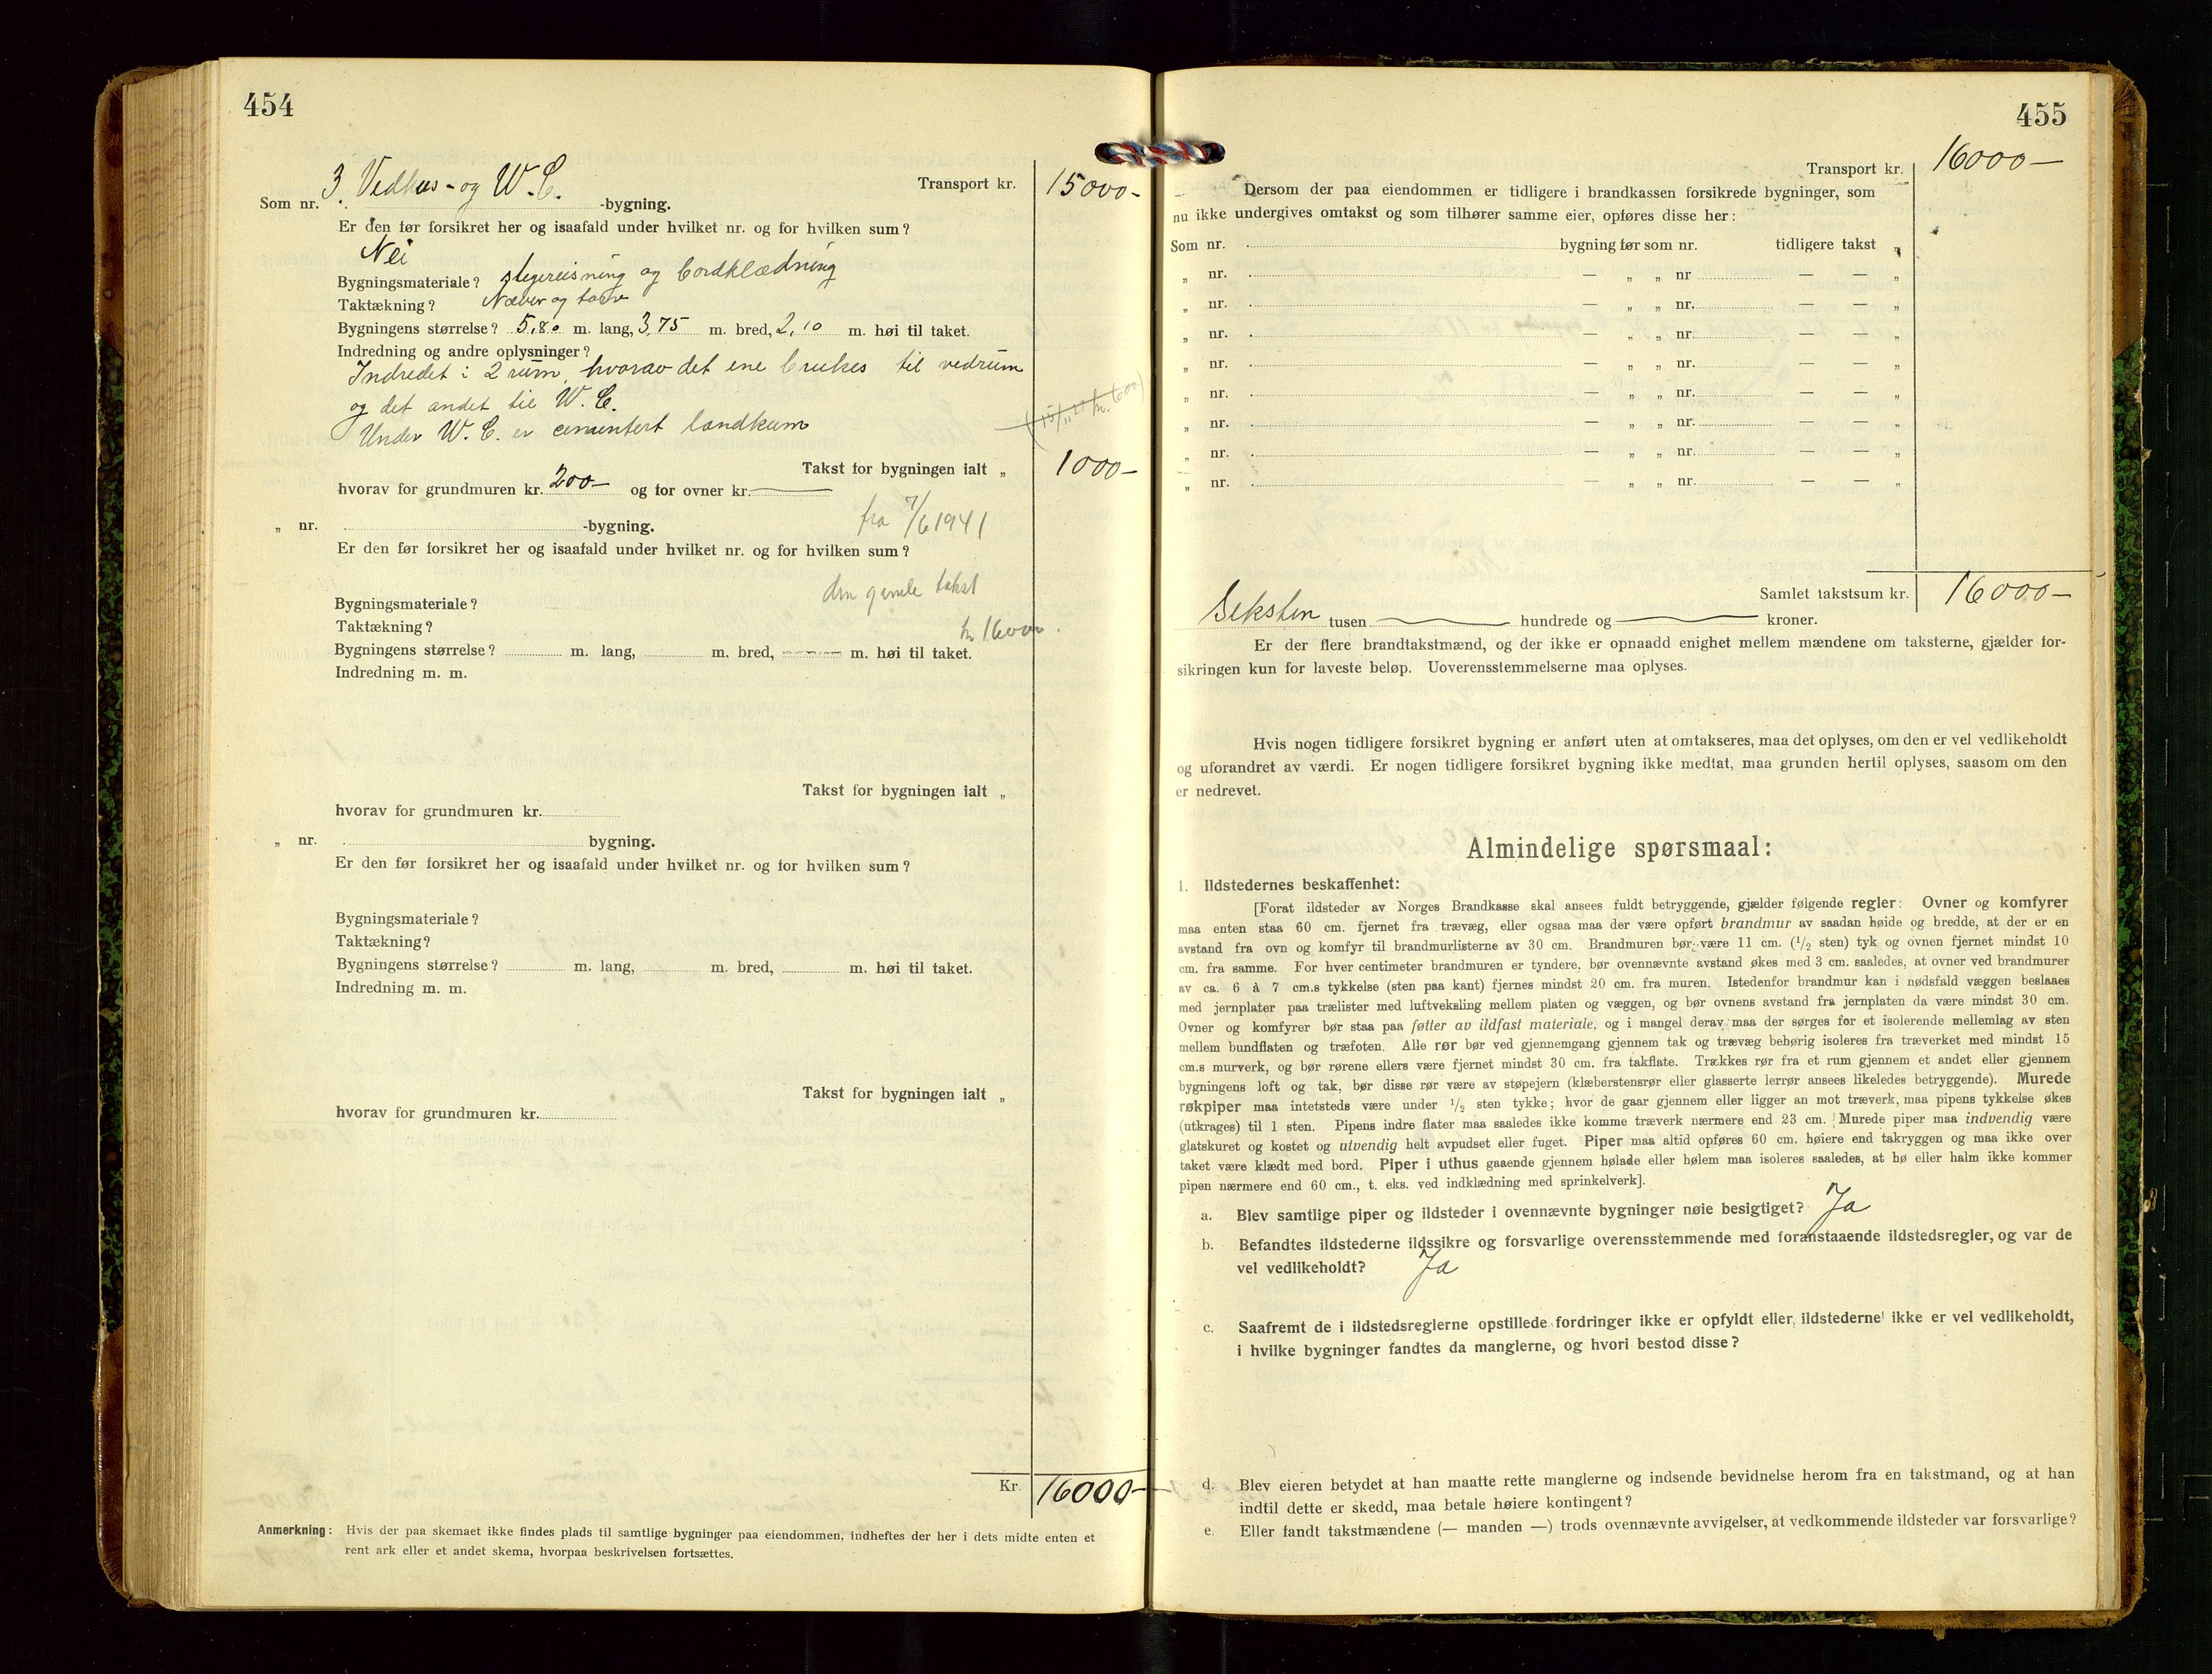 454
Transport kr. 15000-
Som nr. 3. Vedhus- og W.C. -bygning.
Er den før forsikret her og isaafald under hvilket nr. og for hvilken sum?
Nei
Bygningsmateriale? stegereisning og bordklædning
Taktækning? Næver og torv
Bygningens størrelse? 5,80 m. lang, 3,75 m. bred, 2,10 m. høi til taket.
Indredning og andre oplysninger?
Indredet i 2 rum, hvorav det ene brukes til vedrum
og det andet til W.C.
Under W.C. er cementert landkum
Takst for bygningen ialt „ 1000-
hvorav for grundmuren kr. 200- og for ovner kr.
fra 7/6 1941
„ nr. -bygning.
Er den før forsikret her og isaafald under hvilket nr. og for hvilken sum?
den gamle takst
Bygningsmateriale?
Taktækning?
kr 16000.
Bygningens størrelse? m. lang, m. bred, m. høi til taket.
Indredning m. m.
Takst for bygningen ialt „
hvorav for grundmuren kr.
„ nr. bygning.
Er den før forsikret her og isaafald under hvilket nr. og for hvilken sum?
Bygningsmateriale?
Taktækning?
Bygningens størrelse? m. lang, m. bred, m. høi til taket.
Indredning m. m.
Takst for bygningen ialt „
hvorav for grundmuren kr.
Kr. 16000-
Anmerkning: Hvis der paa skemaet ikke findes plads til samtlige bygninger paa eiendommen, indheftes der her i dets midte enten et
rent ark eller et andet skema, hvorpaa beskrivelsen fortsættes.
455
Transport kr. 16000-
Dersom der paa eiendommen er tidligere i brandkassen forsikrede bygninger, som
nu ikke undergives omtakst og som tilhører samme eier, opføres disse her:
Som nr. bygning før som nr. tidligere takst „
„ nr. — „ „ nr — — „
„ nr. — „ „ nr. — — „
„ nr. — „ „ nr. — — „
„ nr. — „ „ nr. — — „
„ nr. — „ „ nr. — — „
„ nr. — „ „ nr. — — „
„ nr. — „ „ nr. — — „
„ nr. — „ „ nr. — — „
Samlet takstsum kr. 16000-
Seksten tusen hundrede og kroner.
Er der flere brandtakstmænd, og der ikke er opnaadd enighet mellem mændene om taksterne, gjælder for-
sikringen kun for laveste beløp. Uoverensstemmelserne maa oplyses.
Hvis nogen tidligere forsikret bygning er anført uten at omtakseres, maa det oplyses, om den er vel vedlikeholdt
og uforandret av værdi. Er nogen tidligere forsikret bygning ikke medtat, maa grunden hertil oplyses, saasom om den
er nedrevet.
Almindelige spørsmaal:
1. Ildstedernes beskaffenhet:
[Forat ildsteder av Norges Brandkasse skal ansees fuldt betryggende, gjælder følgende regler: Ovner og komfyrer
maa enten staa 60 cm. fjernet fra trævæg, eller ogsaa maa der være opført brandmur av saadan høide og bredde, at der er en
avstand fra ovn og komfyr til brandmurlisterne av 30 cm. Brandmuren bør være 11 cm. (1/2 sten) tyk og ovnen fjernet mindst 10
cm. fra samme. For hver centimeter brandmuren er tyndere, bør ovennævnte avstand økes med 3 cm. saaledes, at ovner ved brandmurer
av ca. 6 à 7 cm.s tykkelse (sten paa kant) fjernes mindst 20 cm. fra muren. Istedenfor brandmur kan i nødsfald væggen beslaaes
med jernplater paa trælister med luftveksling mellem platen og væggen, og bør ovnens avstand fra jernplaten da være mindst 30 cm.
Ovner og komfyrer bør staa paa føtter av ildfast materiale, og i mangel derav maa der sørges for et isolerende mellemlag av sten
mellem bundflaten og træfoten. Alle rør bør ved gjennemgang gjennem tak og trævæg behørig isoleres fra træverket med mindst 15
cm.s murverk, og bør rørene ellers være fjernet mindst 30 cm. fra takflate. Trækkes rør fra et rum gjennem et andet eller gjennem
bygningens loft og tak, bør disse rør være av støpejern (klæberstensrør eller glasserte lerrør ansees likeledes betryggende). Murede
røkpiper maa intetsteds være under 1/2 sten tykke; hvor de gaar gjennem eller ligger an mot træverk, maa pipens tykkelse økes
(utkrages) til 1 sten. Pipens indre flater maa saaledes ikke komme træverk nærmere end 23 cm. Murede piper maa indvendig være
glatskuret og kostet og utvendig helt avpudset eller fuget. Piper maa altid opføres 60 cm. høiere end takryggen og maa ikke over
taket være klædt med bord. Piper i uthus gaaende gjennem hølade eller hølem maa isoleres saaledes, at hø eller halm ikke kommer
pipen nærmere end 60 cm., t. eks. ved indklædning med sprinkelverk].
a. Blev samtlige piper og ildsteder i ovennævnte bygninger nøie besigtiget? Ja
b. Befandtes ildstederne ildssikre og forsvarlige overensstemmende med foranstaaende ildstedsregler, og var de
vel vedlikeholdt? Ja
c. Saafremt de i ildstedsreglerne opstillede fordringer ikke er opfyldt eller ildstederne ikke er vel vedlikeholdt,
i hvilke bygninger fandtes da manglerne, og hvori bestod disse?
d. Blev eieren betydet at han maatte rette manglerne og indsende bevidnelse herom fra en takstmand, og at han
indtil dette er skedd, maa betale høiere kontingent?
e. Eller fandt takstmændene (— manden —) trods ovennævnte avvigelser, at vedkommende ildsteder var forsvarlige?